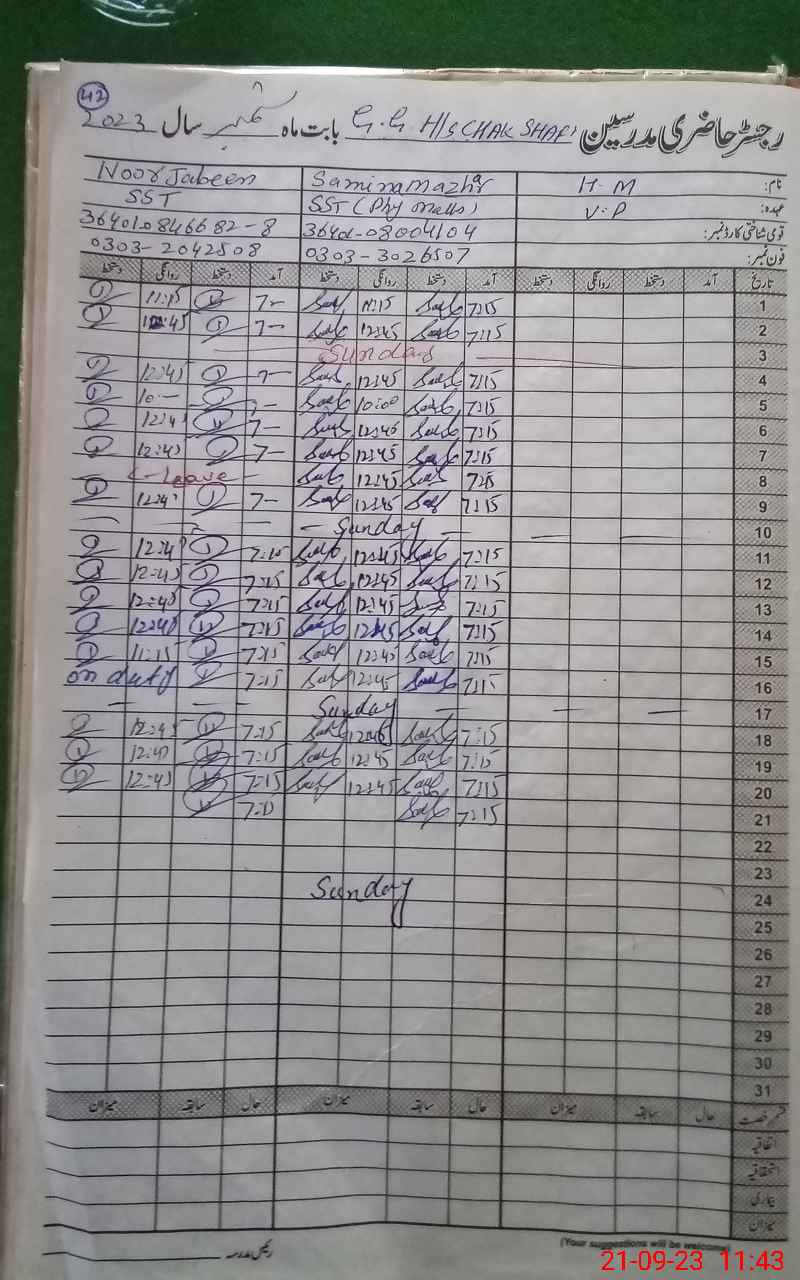 42
رجسٹر حاضری مدرسین G.G H/S CHAK SHAFI بابت ماہ ستمبر سال 2023
نام: H-M Samina Mazhr Noor Jabeen
عہدہ: V-P SST (Phy Maths) SST
قومی شناختی کارڈ نمبر: 3640108466 82-8
فون نمبر: 0303-3026507 0303-2042508
تاریخ آمد دستخط روانگی دستخط آمد دستخط روانگی دستخط آمد دستخط روانگی دستخط
1 7:15 11:15 7- 11:15
2 7:15 12:45 7-
3 Sunday
4 7:15 12:45 7- 12:45
5 7:15 10:00 7- 10-
6 7:15 12:45 7-
7 7:15 12:45 7- 12:45
8 12:45 C-Leave
9 7:15 12:45 7-
10 Sunday
11 7:15 12:45 7:15
12 7:15 12:45 7:15 12:45
13 7:15 12:45 7:15
14 7:15 12:45 7:15
15 7:15 12:45 7:15 11:15
16 7:15 12:45 7:15 on duty
17 Sunday
18 7:15 12:45 7:15 12:45
19 7:15 12:45 7:15
20 7:15 12:45 7:15 12:45
21 7:15
22
23
24 Sunday
25
26
27
28
29
30
31
قسم رخصت حال سابقہ میزان حال سابقہ میزان حال سابقہ میزان
اتفاقیہ
استحقاقیہ
بیماری
میزان
رئیس مدرسہ
(Your suggestions will be welcome)
21-09-23 11:43